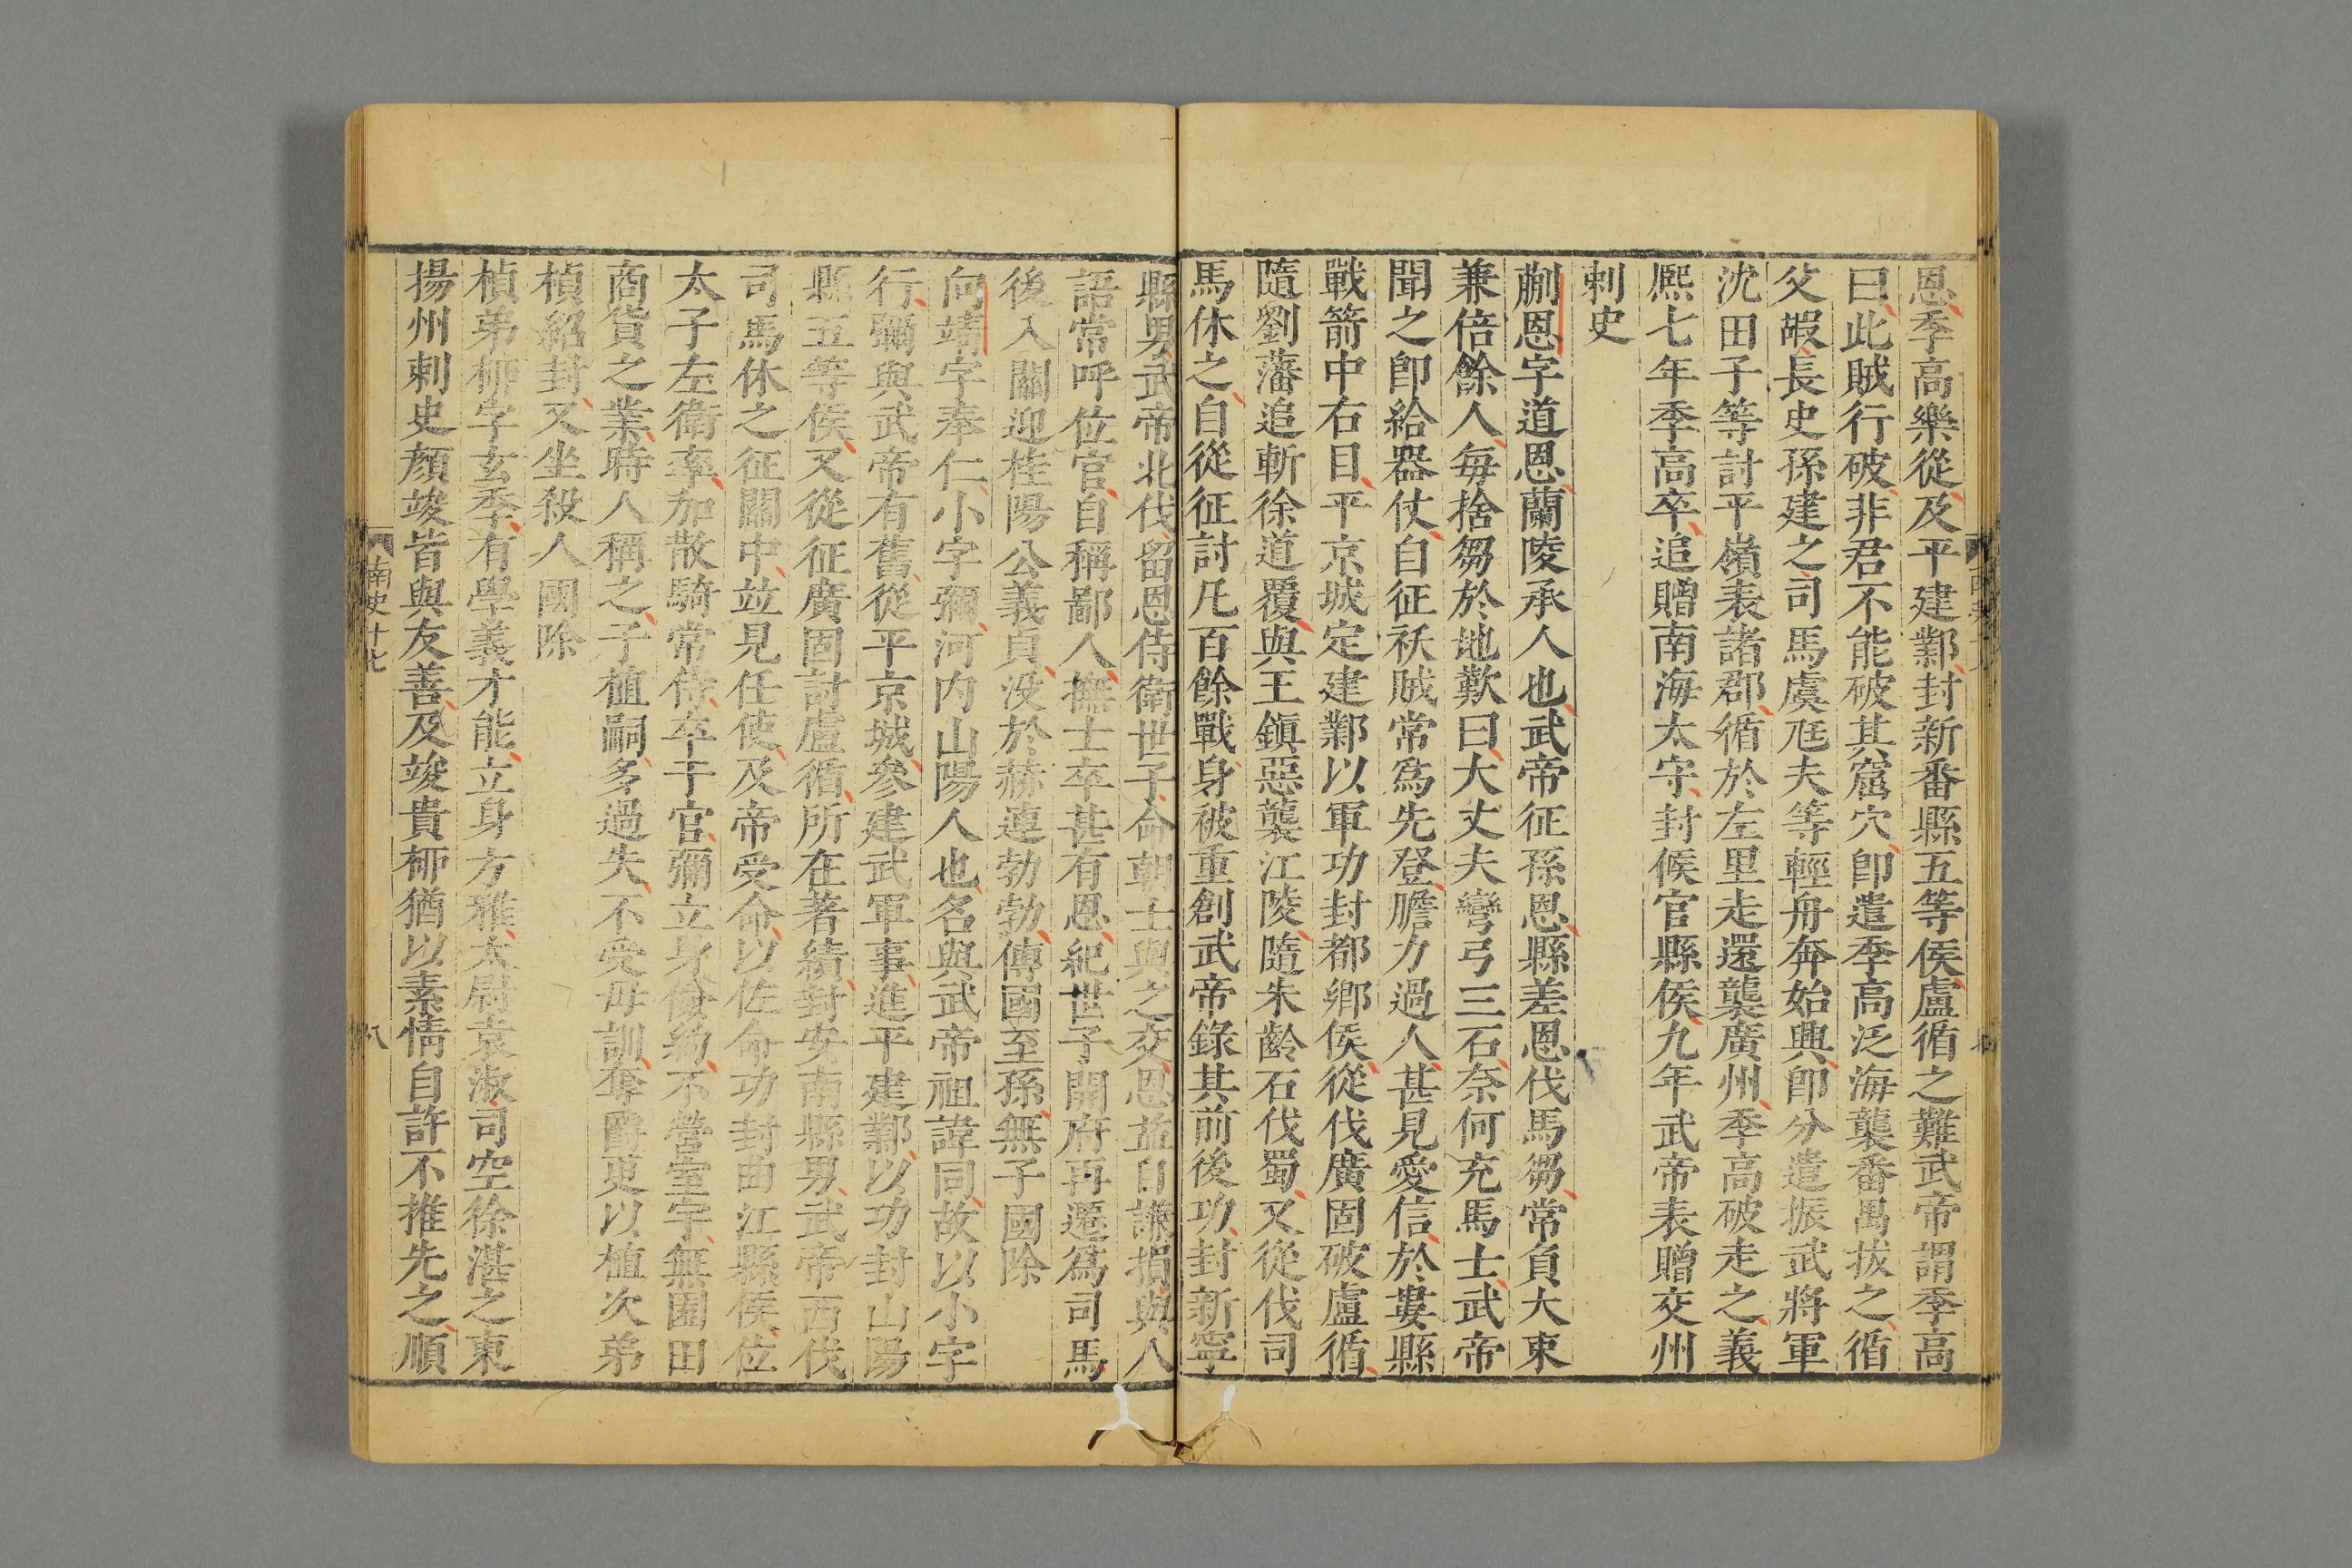 恩季高樂從及平建鄴封新番縣五等侯盧循之難武帝謂季高
曰此賊行破非君不能破其窟穴卽遣季高泛海襲番禺拔之循
父嘏長史孫建之司馬虞尫夫等輕舟奔始興卽分遣振武將軍
沈田子等討平嶺表諸郡循於左里走還襲廣州季高破走之義
熈七年季高卒追贈南海太守封候官縣侯九年武帝表贈交州
刺史
蒯恩字道恩蘭陵承人也武帝征孫恩縣差恩伐馬芻常負大束
兼倍餘人每捨芻於地歎曰大丈夫彎弓三石奈何充馬士武帝
聞之卽給器仗自征祅賊常爲先登膽力過人甚見愛信於婁縣
戰箭中右目平京城定建鄴以軍功封都鄉侯從伐廣固破盧循
隨劉藩追斬徐道覆與王鎭惡襲江陵隨朱齡石伐蜀又從伐司
馬休之自從征討凡百餘戰身被重創武帝錄其前後功封新寧
縣男武帝北伐留恩侍衛世子命朝士與之交恩益自謙損與人
語常呼位官自稱鄙人撫士卒甚有恩紀世子開府再遷爲司馬
後入關迎桂陽公義貞没於赫連勃勃傳國至孫無子國除
向靖字奉仁小字彌河内山陽人也名與武帝祖諱同故以小字
行彌與武帝有舊從平京城參建武軍事進平建鄴以功封山陽
縣五等侯又從征廣固討盧循所在著績封安南縣男武帝西伐
司馬休之征關中竝見任使及帝受命以佐命功封曲江縣侯位
太子左衛率加散騎常侍卒于官彌立身儉約不營室宇無園田
商貨之業時人稱之子植嗣多過失不受母訓奪爵更以植次弟
楨紹封又坐殺人國除
楨弟栁字玄季有學義才能立身方雅太尉袁淑司空徐湛之東
揚州刺史顔竣皆與友善及竣貴栁猶以素情自許不推先之順
南史十七
八